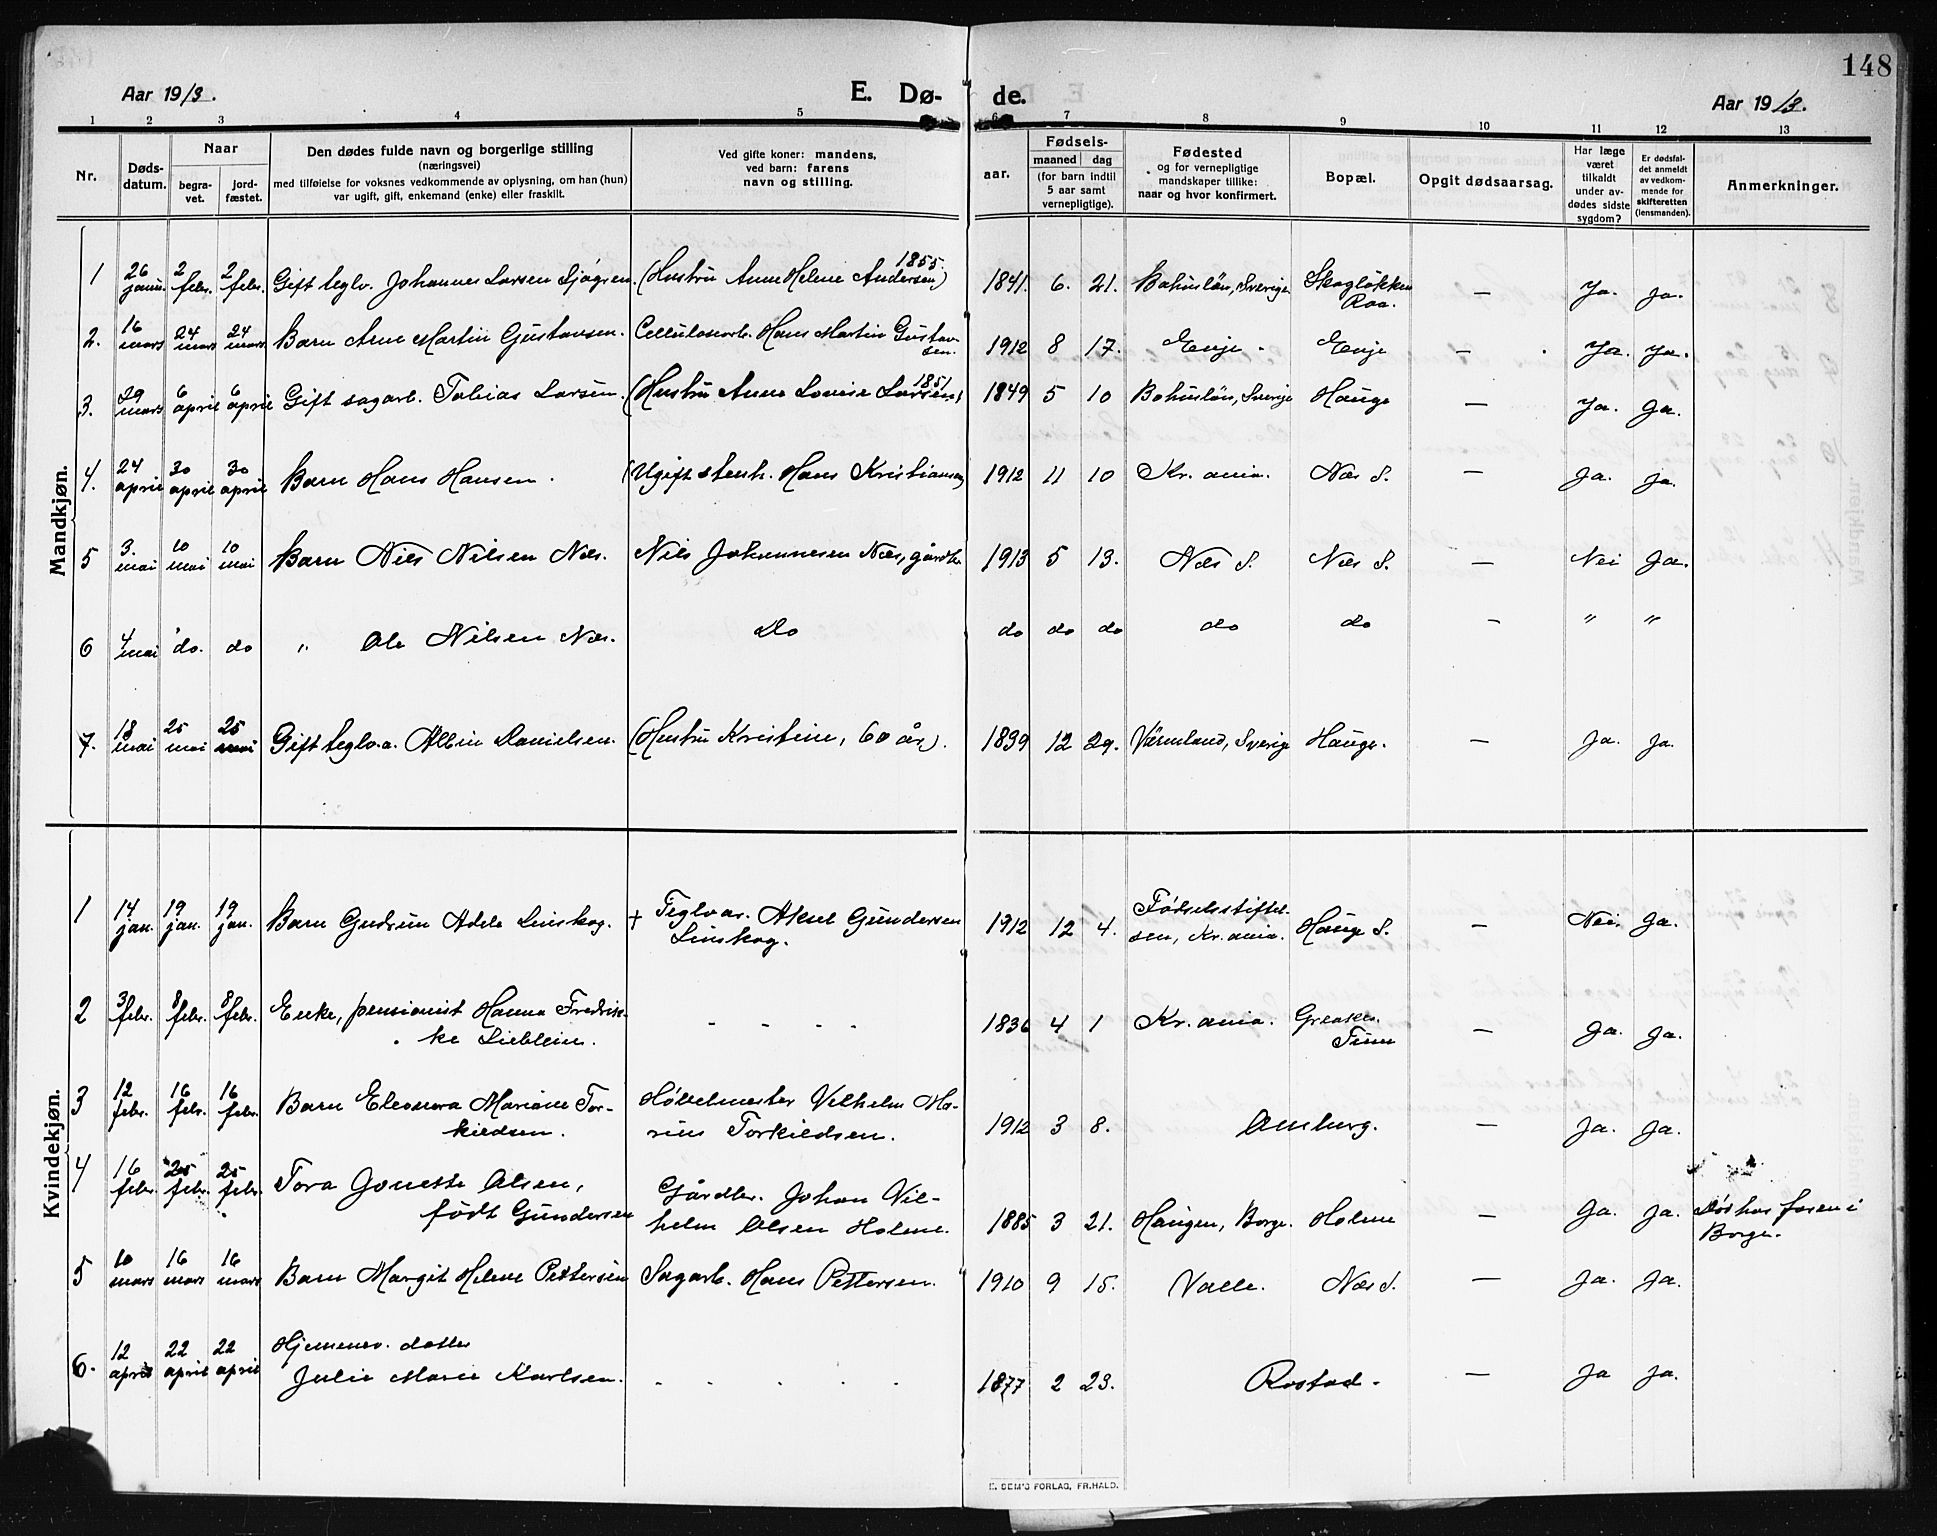 148
Aar 1913.
E. Dø-
de.
Aar 1913.
1 2 3 4 5 6 7 8 9 10 11 12 13
Nr.
Døds-
datum.
Naar
begra-
vet.
jord-
fæstet.
Den dødes fulde navn og borgerlige stilling
(næringsvei)
med tilføielse for voksnes vedkommende av oplysning, om han (hun)
var ugift, gift, enkemand (enke) eller fraskilt.
Ved gifte koner: mandens,
ved barn: farens
navn og stilling.
aar.
Fødsels-
maaned dag
(for barn indtil
5 aar samt
vernepligtige).
Fødested
og for vernepligtige
mandskaper tillike:
naar og hvor konfirmert.
Bopæl.
Opgit dødsaarsag.
Har læge
været
tilkaldt
under av-
dødes sidste
sygdom?
Er dødsfal-
det anmeldt
av vedkom-
mende for
skifteretten
(lensmanden).
Anmerkninger.
Mandkjøn.
1 26 janu. 2 febr. 2 febr. Gift teglv. Johannes Larsen Sjögren. (Hustru Anne Helene Andersen) 1855. 1841. 6. 21. Bohuslän, Sverige Skogløkken Roa. — Ja. Ja.
2. 16 mars 24 mars 24 mars Barn Arne Martin Gustavsen. Cellulosearb. Hans Martin Gustav-
sen. 1912 8 17. Enje. Enje — Ja. Ja.
3. 29 mars 6 april 6 april Gift sagarb. Tobias Larsen. (Hustru Anne Lovise Larsen) 1851 1849 5 10 Bohuslän, Sverige Hauge — Ja. Ja.
4. 24 april 30 april 30 april Barn Hans Hansen. (Ugift stenh. Hans Kristiansen) 1912 11 10 Kr.ania. Næs S. — Ja. Ja.
5 3. mai 10 mai 10 mai Barn Nils Nilsen Næs. Nils Johannesen Næs, gårdbr. 1913 5 13. Næs S. Næs S. — Nei Ja.
6 4 mai do. do " Ole Nilsen Næs. Do do do do do do — " "
7. 18 mai 25 mai 25 mai Gift teglv.a. Albin Danielsen. (Hustru Kristine, 60 år). 1839 12 29. Värmland, Sverige Hauge. — Ja. Ja.
Kvindekjøn.
1 14 jan. 19 jan. 19 jan. Barn Gudrun Adele Linskog. + Teglvar. Aksel Gundersen
Linskog. 1912 12 4. Fødselsstiftel-
sen, Kr.ania. Hauge S. — Nei. Ja.
2 3 febr. 8 febr. 8 febr. Enke, pensionist Hanna Fredrik-
ke Lieblein. - - - - 1836 4 1 Kr.ania. Greaker.
Tune — Ja. Ja.
3 12 febr. 16 febr. 16 febr. Barn Eleonora Mariane Tor-
kildsen. Høvelmester Vilhelm Ma-
rius Torkildsen. 1912 3 8. Amburg. — Ja. Ja.
4 16 febr. 25 febr. 25 febr. Tora Jonette Olsen,
født Gundersen Gårdbr. Johan Vil-
helm Olsen Holme. 1885 3 21. Haugen, Borge. Holme — Ja. Ja. Død hos faren i
Borge.
5 10 mars 16 mars 16 mars Barn Margit Helene Pettersen Sagarb. Hans Pettersen. 1910 9 15. Valle. Næs S. — Ja. Ja.
6. 12 april 22 april 22 april Hjemmev. datter
Julie Marie Karlsen. - - - - - 1877 2 23. Rostad. — Ja Ja.
E. SEM'S FORLAG, FR.HALD.